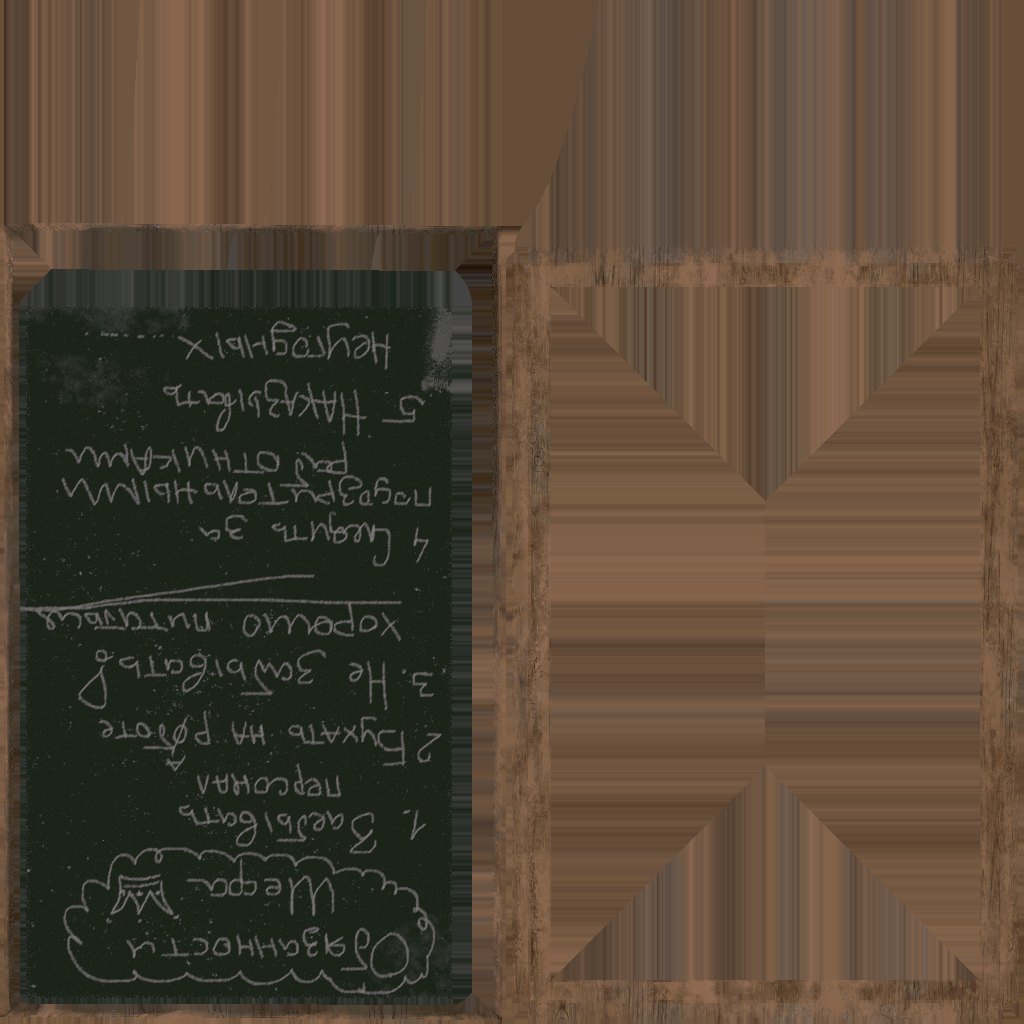 Обязанности
Шефа
1. Заебывать
персонал
2 Бухать на работе
3. Не забывать
хорошо питаться
4 Следить за
подозрительными
работниками
5 Наказывать
Неугодных .......